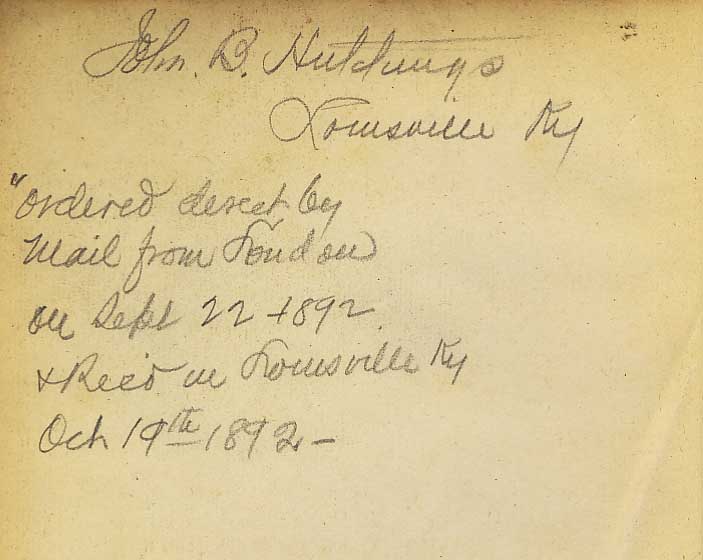 John. B. Hutchings
Louisville Ky
"ordered direct by
Mail from London
on Sept 22 1892
& Rec'd in Louisville Ky
Oct 19th 1892 -